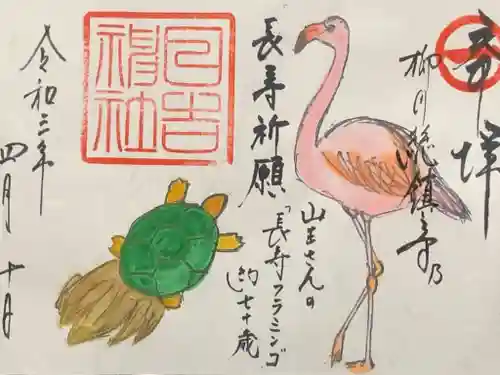 奉拝
柳川総鎮守乃
長寿祈願
山王さんの
「長寿フラミンゴ」
約七十歳
日吉神社
令和三年
四月十日